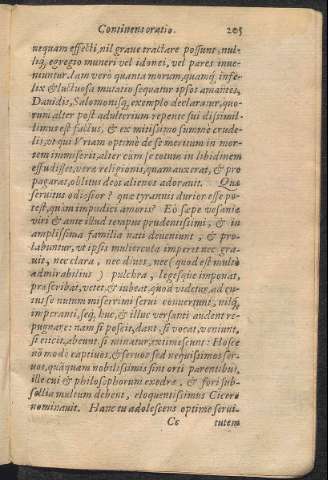 Continens oratio. 205
nequam effecti, nil grave tractare possunt, nul-
liq́; egregio muneri vel idonei, vel pares inve-
niuntur. Iam verò quanta morum, quamq́; infe-
lix & luctuosa mutatio sequatur ipsos amantes,
Davidis, Salomonisq́; exemplo declaratur, quo-
rum alter post adulterium repente sui dissimil-
limus est factus, & ex mitissimo summè crude-
lis, vt qui Vriam optimè de se meritum in mor-
tem immiserit, alter cùm se totum in libidinem
effudisset, veræ religionis, quam auxerat, & pro
pagarat, oblitus deos alienos adoravit. Quæ
servitus odiosior? quæ tyrannis durior esse po-
test, quàm impudici amoris? Eò sæpe vesaniæ
viri & ante illud tempus prudentissimi, & in
amplissima familia nati deveniunt, & pro-
labuntur, vt ipsis muliercula imperet nec gra-
vis, nec clara, nec dives, nec (quod est multò
admirabilius) pulchra, legesque imponat,
præscribat, vetet, & iubeat quod videtur, ad cu-
ius se nutum miserrimi servi convertunt, nilq́;
imperanti, seq́; huc, & illuc versanti audent re-
pugnare: nam si poscit, dant, si vocat, veniunt,
si eiicit, abeunt, si minatur, extimescunt: Hosce
nõ modò captivos, & servos sed nequissimos ser-
vos, quãquam nobilissimis sint orti parentibus,
ille cui & philosophorum exedræ, & fori sub-
sellia multum debent, eloquentissimus Cicero
nominavit. Hanc tu adolescens optime servi-
Cc tutem